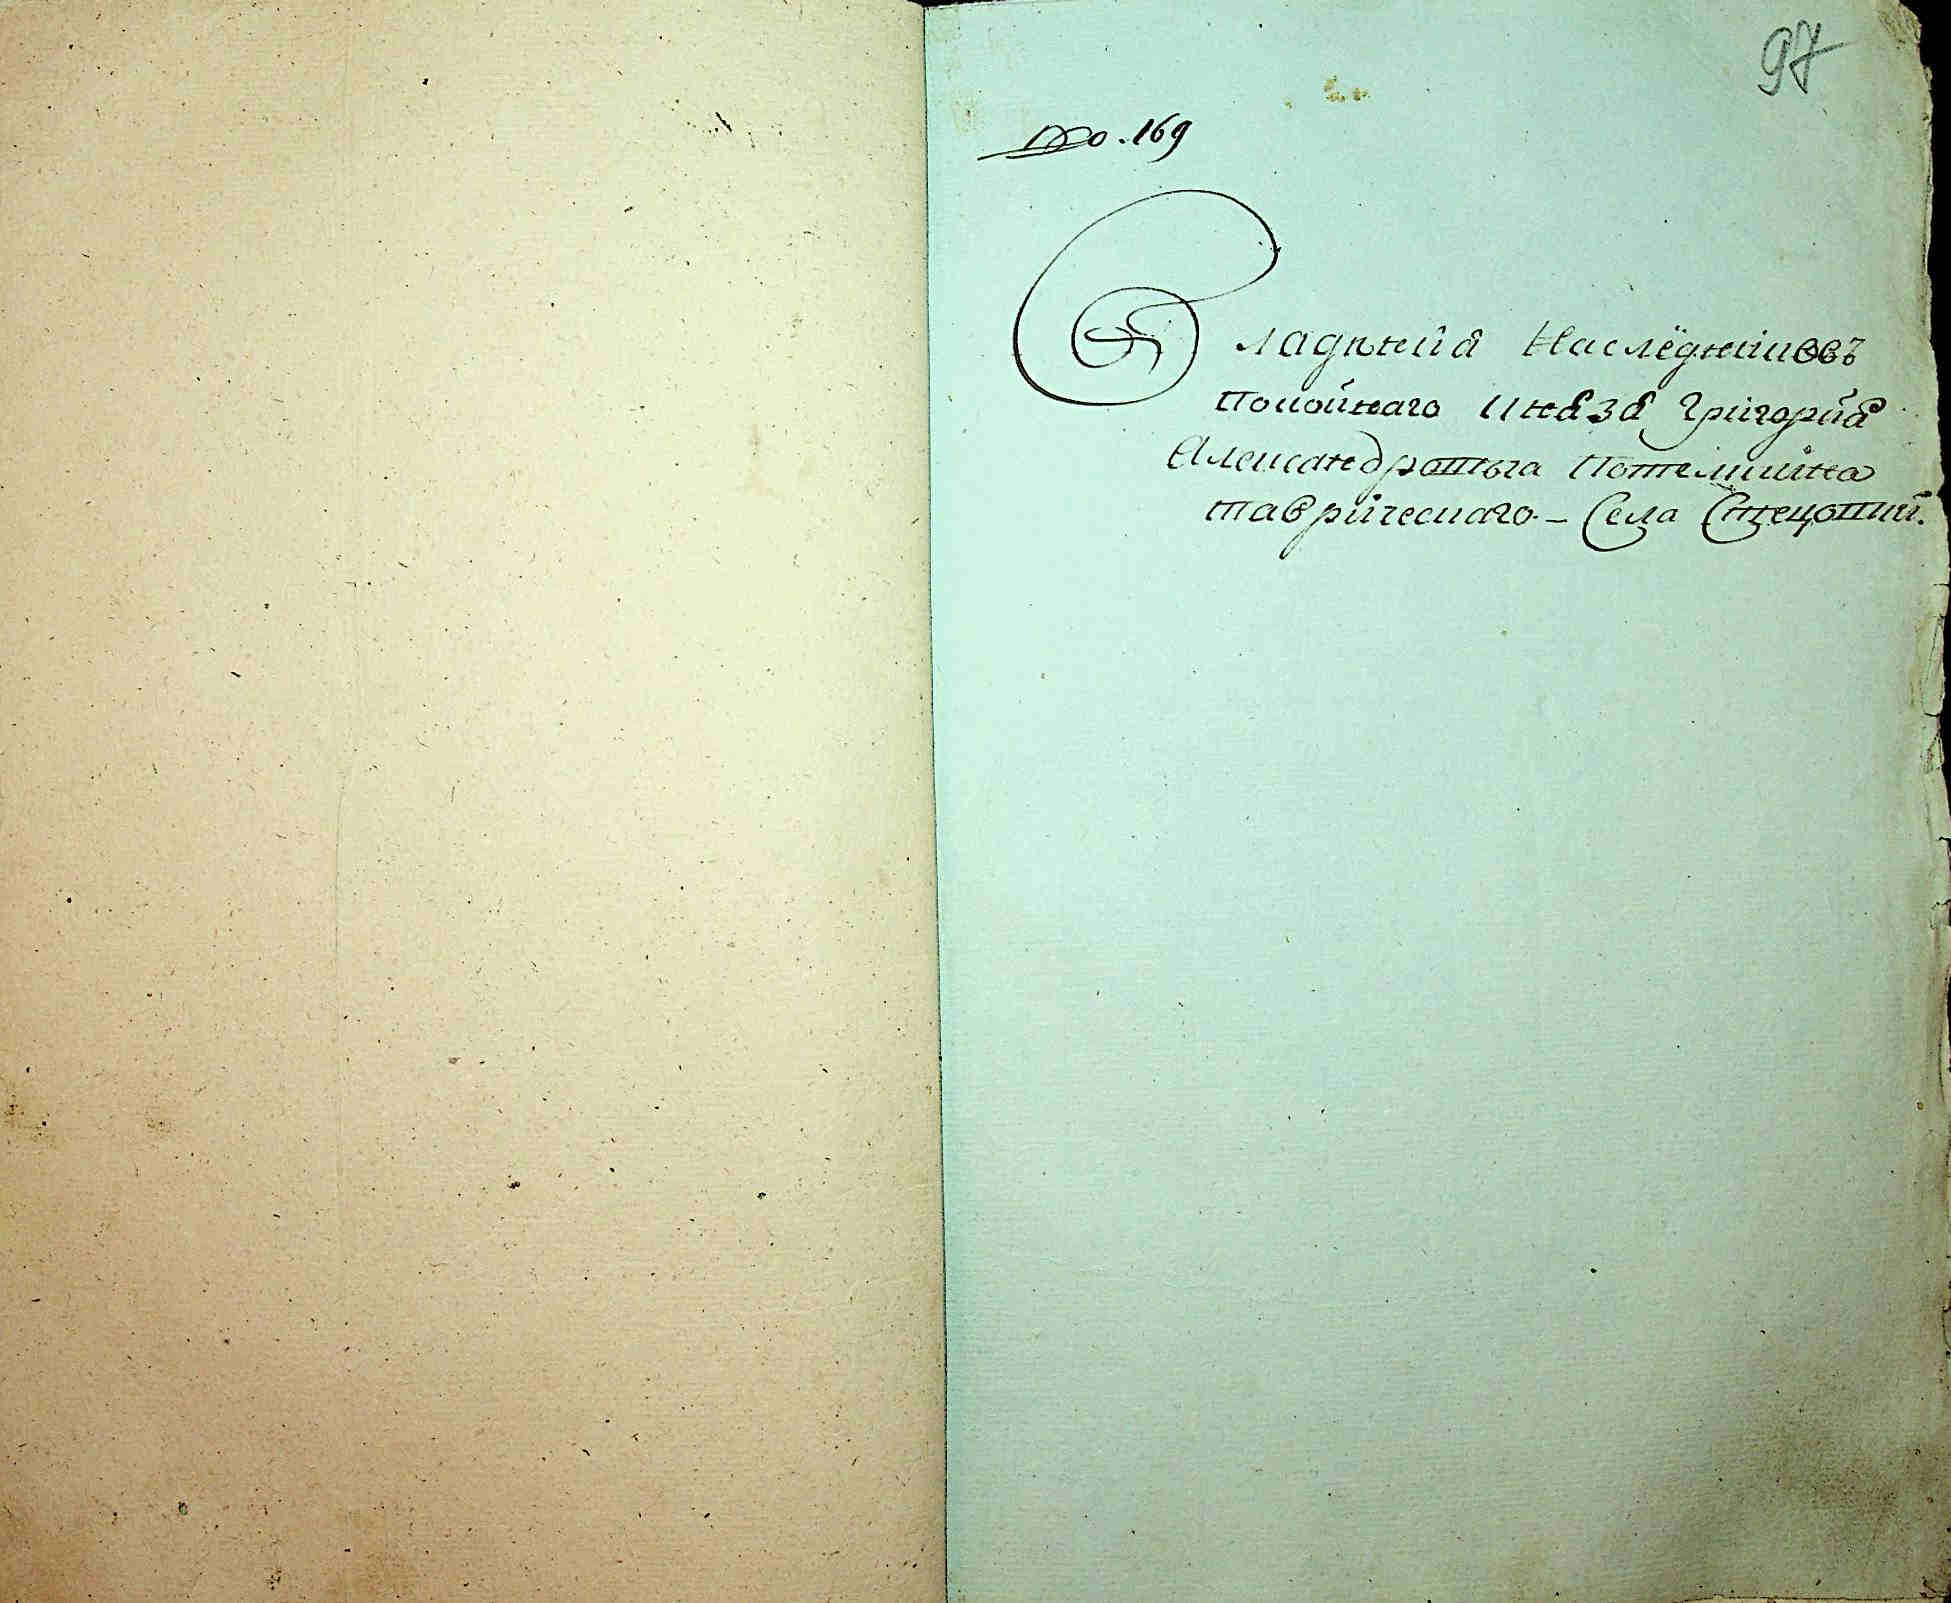 97
No. 169
Владѣнія Наслѣдниковъ
покойнаго Князя Григорія
Александровича Потемкина
таврическаго – Села Стецовки.